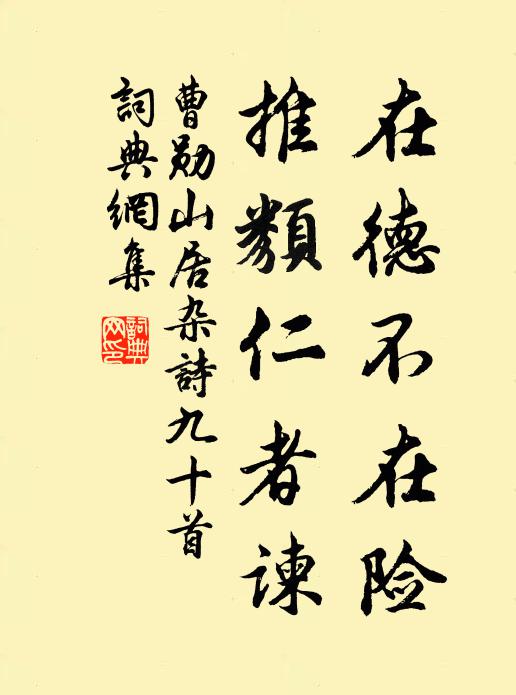 在德不在险
推類仁者谏
曹勋山居杂詩九十首
詞典網集
詞典
网印